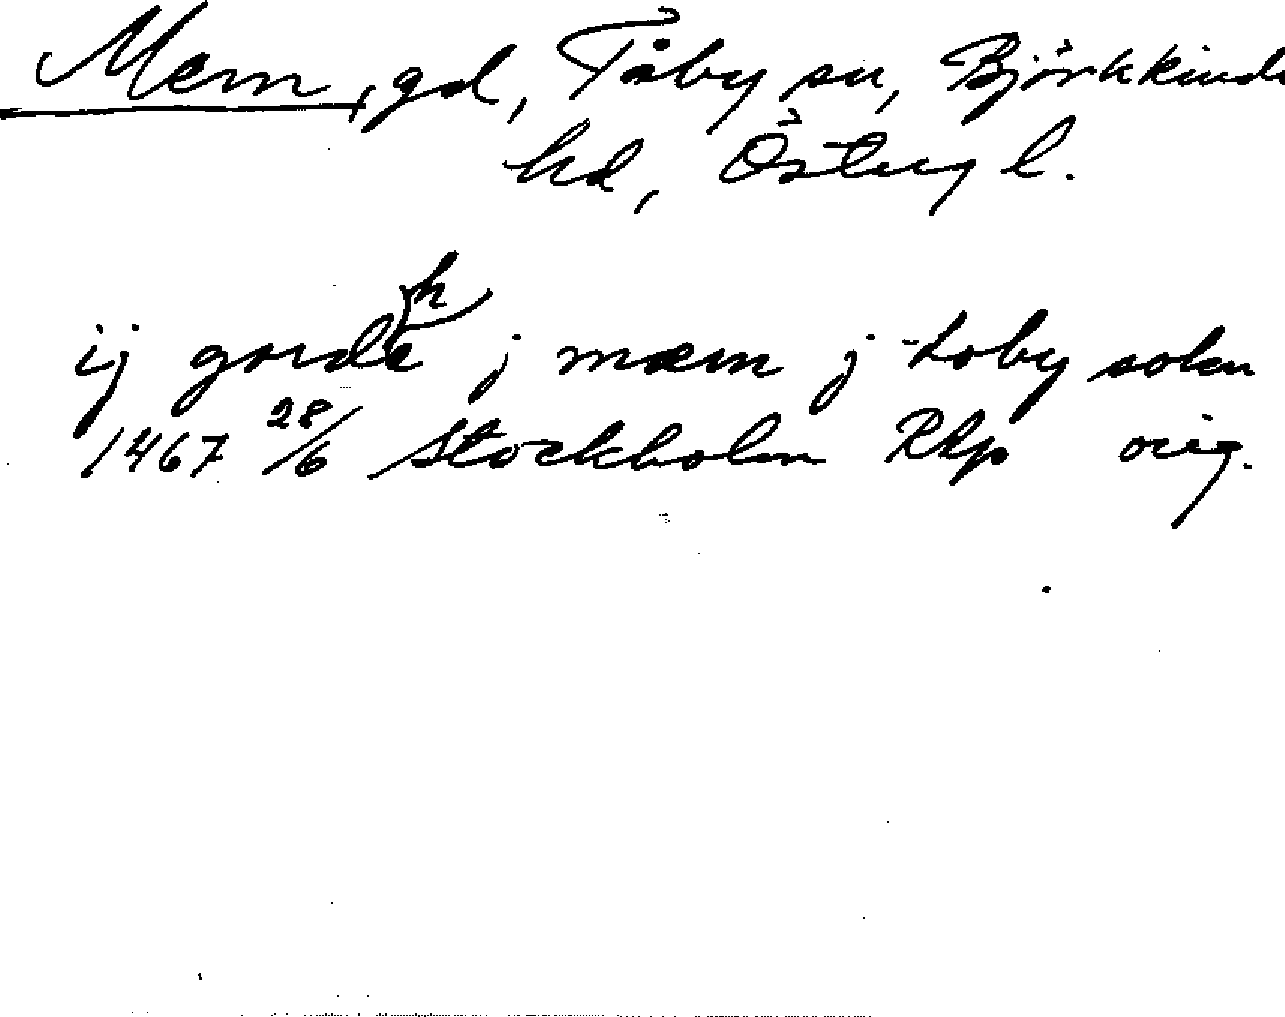 Mem, gd, Tåby sn, Björkkinds
hd, Östergl.
h
ij garda j mæm j toby sokn
1467 28/6 Stockholm RAp orig.